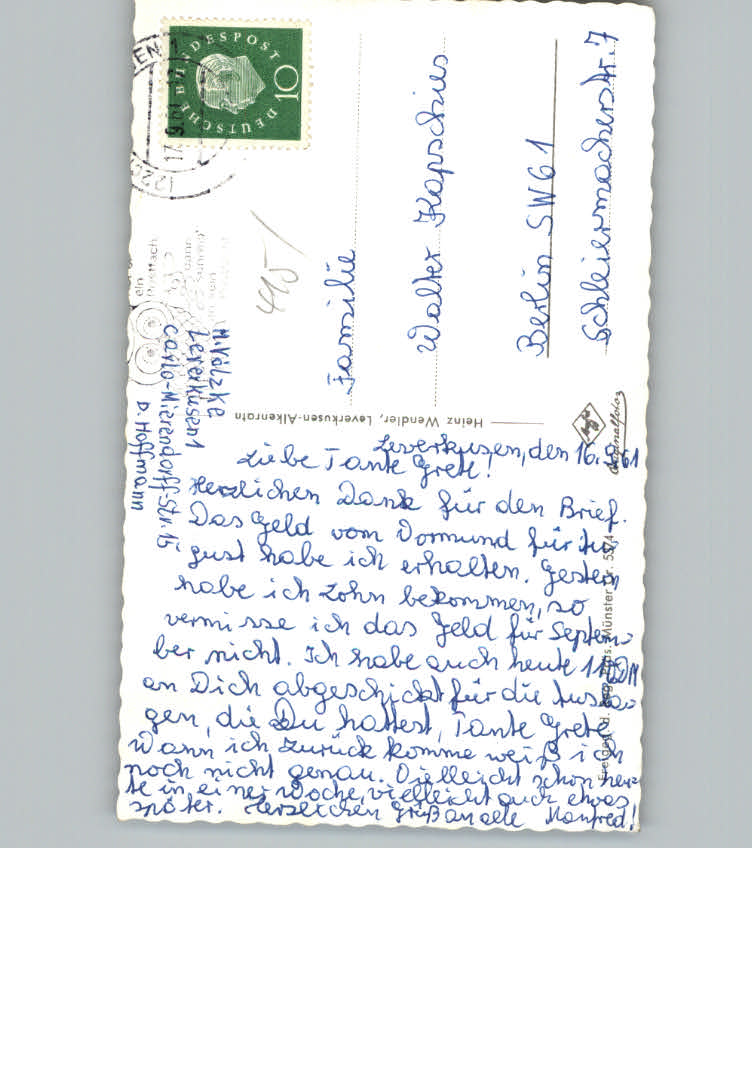 Leverkusen, den 16.9.61
Liebe Tante Grete!
Herzlichen Dank für den Brief.
Das Geld vom Vormund für Au-
gust habe ich erhalten. Gestern
habe ich Lohn bekommen, so
vermisse ich das Geld für Septem-
ber nicht. Ich habe auch heute DM
an Dich abgeschickt für die Ausla-
gen, die Du hattest, Tante Grete.
Wann ich zurück komme weiß ich
noch nicht genau. Vielleicht schon heu-
te in einer Woche, vielleicht auch etwas
später. Herzlichen Gruß an alle Manfred!
Familie
Walter Kapschies
Berlin SW 61
Schleiermacherstr. 7
M. Völzke
Leverkusen 1
Carlo-Mierendorff-Str. 15
b. Hoffmann
Heinz Wendler, Leverkusen-Alkenrath
Originalfoto
Münster Nr. 55
DEUTSCHE BUNDESPOST
10
17.9.61
ein
Postfach
495